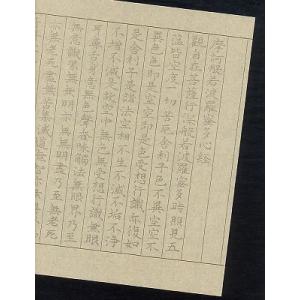 摩訶般若波羅蜜多心経
觀自在菩薩行深般若波羅蜜多時照見五
蘊皆空度一切苦厄舎利子色不異空空不
異色色即是空空即是色受想行識亦復如
是舎利子是諸法空相不生不滅不垢不浄
不増不減是故空中無色無受想行識無眼
耳鼻舌身意無色聲香味觸法無眼界乃至
無意識界無無明亦無無明盡乃至無老死
無老死盡無苦集滅道無